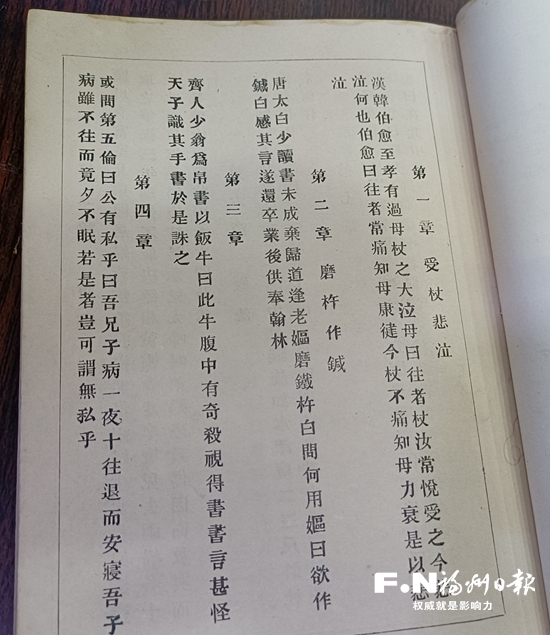 第一章 受杖悲泣
漢韓伯愈至孝有過母杖之大泣母曰往者杖汝常悅受之今悲
泣何也伯愈曰往者常痛知母康徤今杖不痛知母力衰是以悲
泣
第二章 磨杵作鍼
唐太白少讀書未成棄歸道逢老嫗磨鐵杵白問何用嫗曰欲作
鍼白感其言遂還卒業後供奉翰林
第三章
齊人少翁爲帛書以飯牛曰此牛腹中有奇殺視得書書言甚怪
天子識其手書於是誅之
第四章
或問第五倫曰公有私乎曰吾兄子病一夜十往退而安寢吾子
病雖不往而竟夕不眠若是者豈可謂無私乎
F.N 福州日报
权威就是影响力